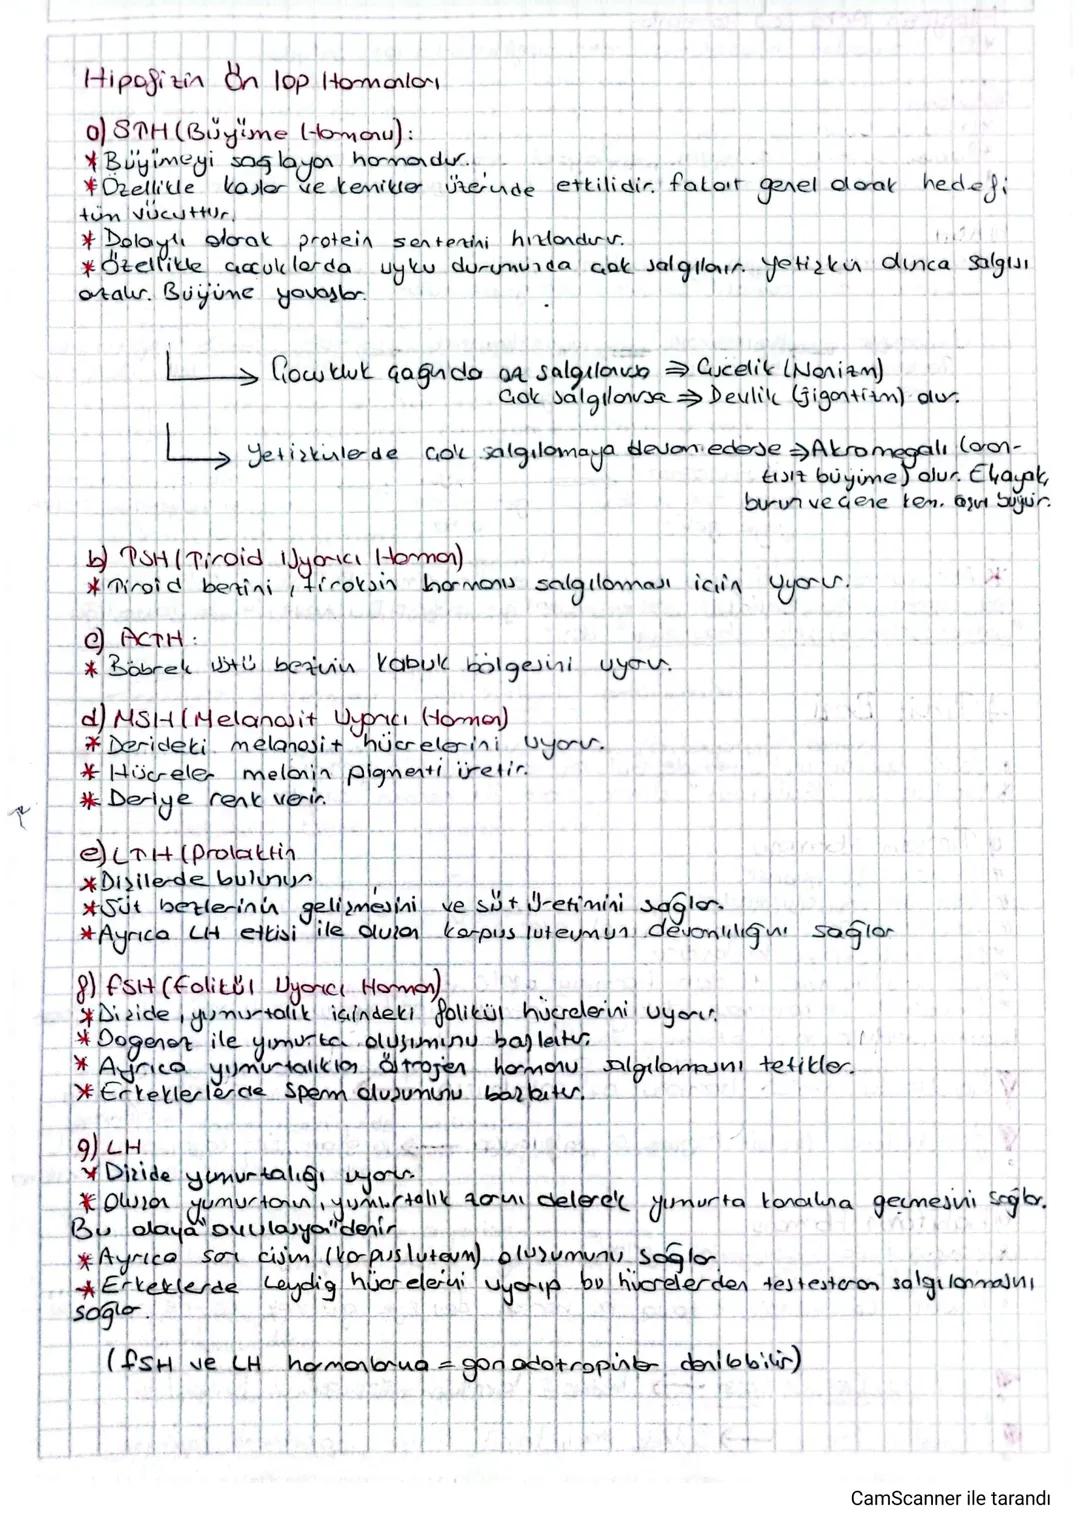 Hipofizin Ön lop Hormonları
a) STH (Büyüme Hormonu):
* Büyümeyi sağlayan hormondur.
* Özellikle kaslar ve kemikler üzerinde etkilidir. fakat genel olarak hedefi
tüm vücuttur.
* Dolaylı olarak protein sentezini hızlandırır.
* Özellikle çocuklarda uyku durumunda çok salgılanır. Yetişkin olunca salgısı
azalır. Büyüme yavaşlar.
→ Çocukluk çağında az salgılanırsa ⇒ Cücelik (Nanizm)
Çok salgılanırsa ⇒ Devlik (jigantizm) olur.
→ Yetişkinlerde çok salgılamaya devam ederse ⇒ Akromegali (oran-
tısız büyüme) olur. El, ayak,
burun ve çene kem. aşırı büyür.
b) TSH (Tiroid Uyarıcı Hormon)
* Tiroid bezini, tiroksin hormonu salgılaması için uyarır.
c) ACTH:
* Böbrek üstü bezinin kabuk bölgesini uyarır.
d) MSH (Melanosit Uyarıcı Hormon)
* Derideki melanosit hücrelerini uyarır.
* Hücreler melanin pigmenti üretir.
* Deriye renk verir.
e) LTH (Prolaktin
* Dişilerde bulunur
* Süt bezlerinin gelişmesini ve süt üretimini sağlar.
* Ayrıca LH etkisi ile oluşan korpus luteumun devamlılığını sağlar
f) FSH (Folikül Uyarıcı Hormon)
* Dişide, yumurtalık içindeki folikül hücrelerini uyarır.
* Oogenez ile yumurta oluşumunu başlatır.
* Ayrıca yumurtalıktan östrojen hormonu salgılamasını tetikler.
* Erkeklerlerde sperm oluşumunu başlatır.
g) LH
* Dişide yumurtalığı uyarır.
* Oluşan yumurtanın, yumurtalık zarını delerek yumurta kanalına geçmesini sağlar.
Bu olaya "ovulasyon" denir
* Ayrıca sarı cisim (korpus luteum) oluşumunu sağlar
* Erkeklerde Leydig hücrelerini uyarıp bu hücrelerden testesteron salgılanmasını
sağlar.
(FSH ve LH hormonlarına = gonadotropinler denilebilir)
CamScanner ile tarandı